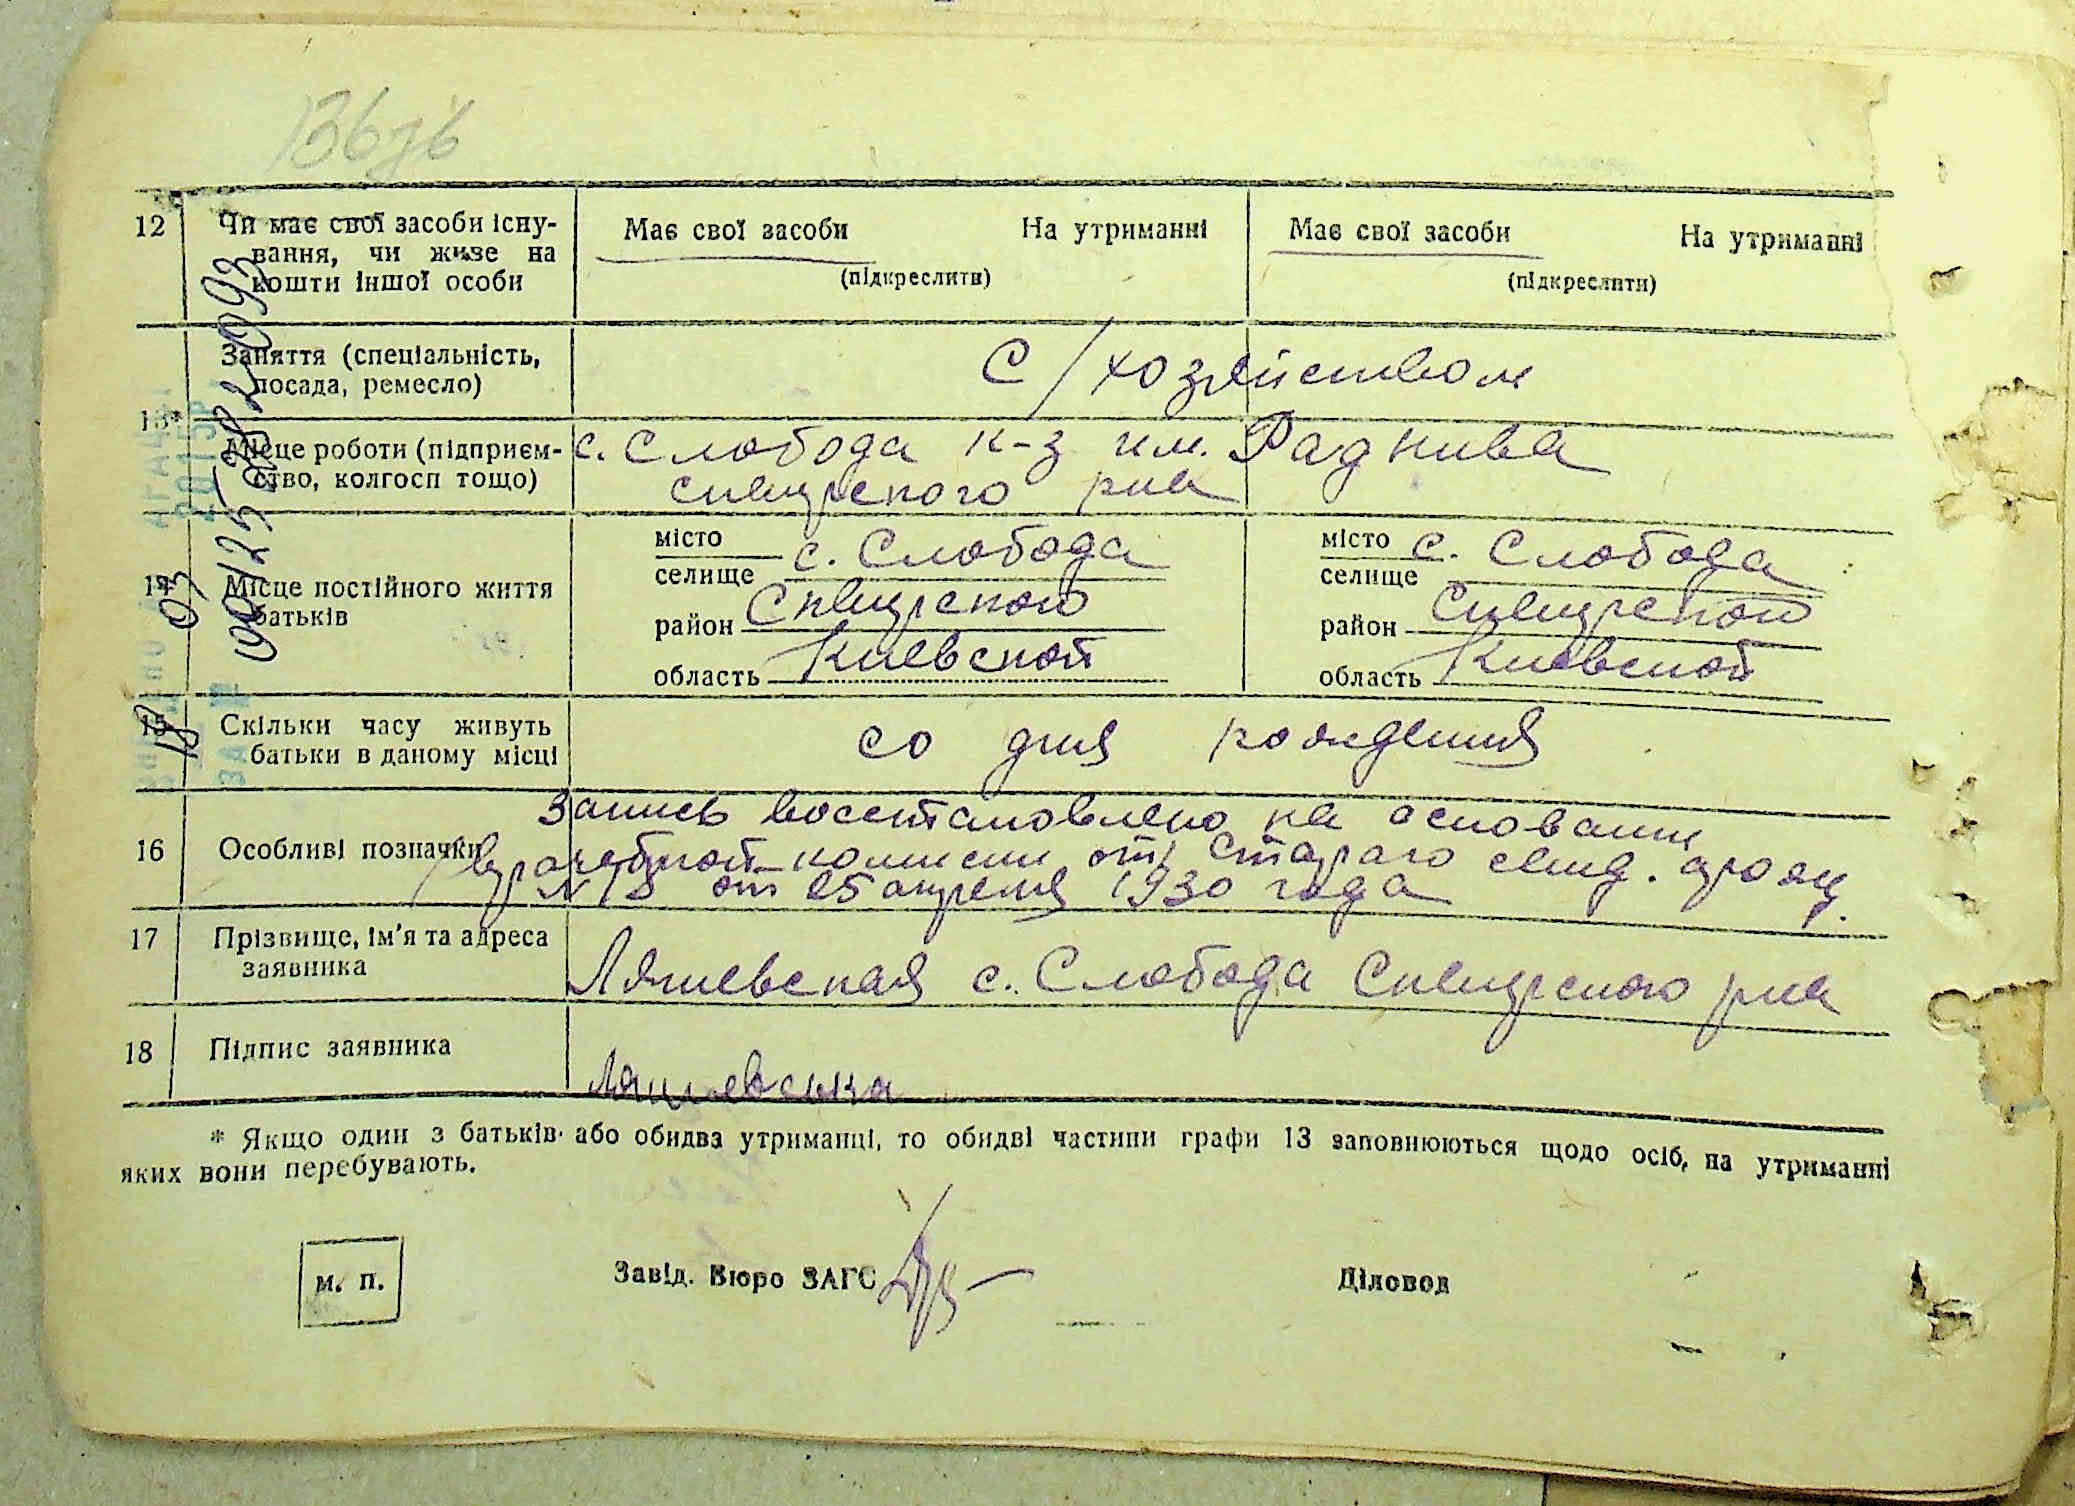 136зв
12 Чи має свої засоби існу- Має свої засоби На утриманні Має свої засоби На утриманні
вання, чи живе на (підкреслити) (підкреслити)
кошти іншої особи
13* Заняття (спеціальність, С/хозяйством
посада, ремесло)
Місце роботи (підприєм- с. Слобода к-з им. Раднива
ство, колгосп тощо) Сквирского рна
14 Місце постійного життя місто с. Слобода місто с. Слобода
батьків селище селище
район Сквирского район Сквирского
область Киевской область Киевской
15 Скільки часу живуть со дня рождения
батьки в даному місці
16 Особливі позначки Запись восстановлено на основании
врачебной комисии от старого свид. о рожд.
N 13 от 25 апреля 1930 года
17 Прізвище, ім'я та адреса Ляшевская с. Слобода Сквирского рна
заявника
18 Підпис заявника Ляшевська
* Якщо один з батьків або обидва утриманці, то обидві частини графи 13 заповнюються щодо осіб, на утриманні
яких вони перебувають.
м. п. Завід. Бюро ЗАГС Діловод